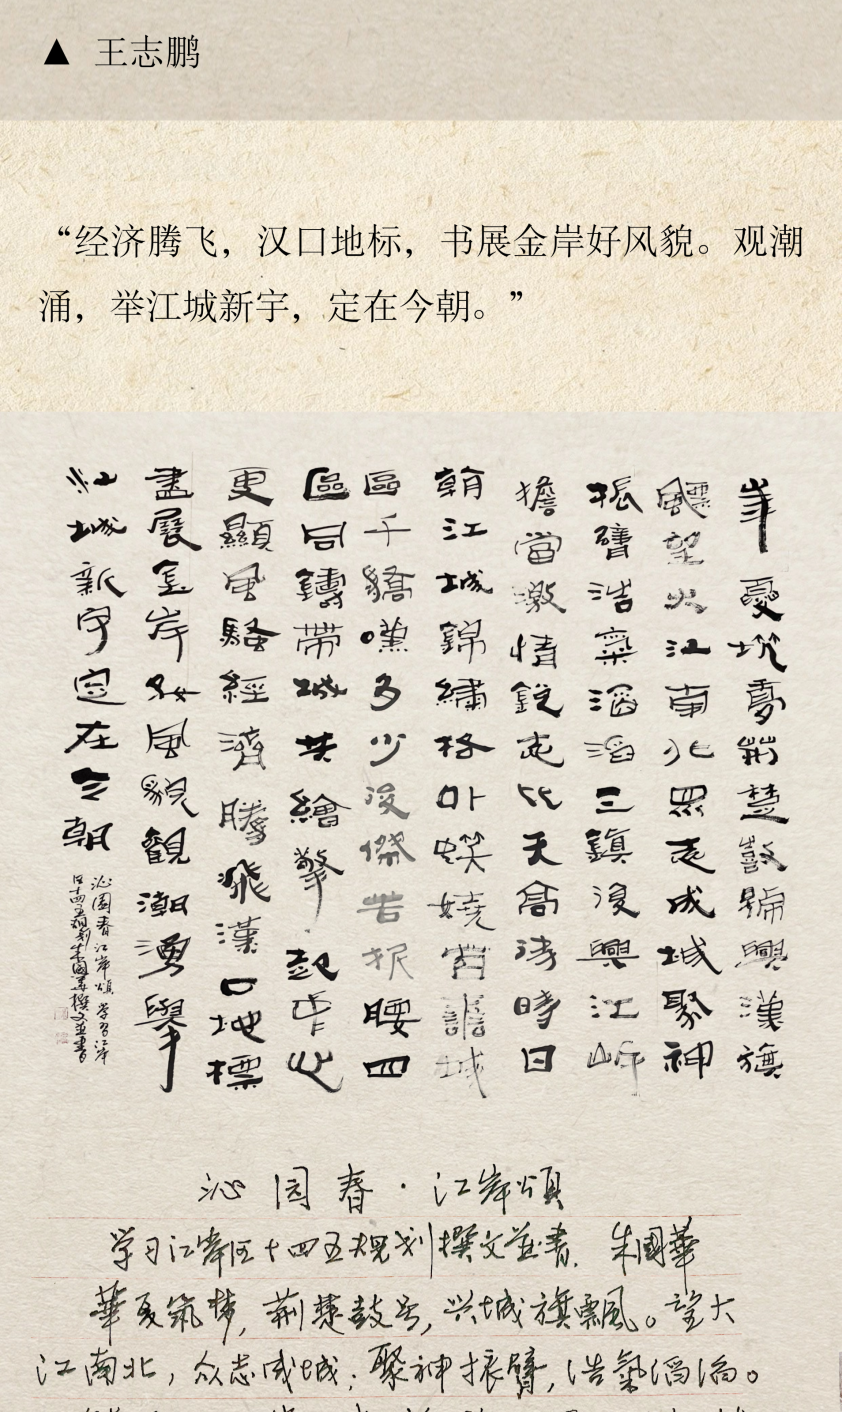 ▲ 王志鹏
“经济腾飞，汉口地标，书展金岸好风貌。观潮
涌，举江城新宇，定在今朝。”
華夏気夢荆楚鼓號興漢旗
飄望大江南北眾志成城聚神
振臂浩氣滔滔三鎮復興江岸
擔當激情銳志比天高待時日
翰江城錦繡格外嬈
區千驕嘆多少俊傑若折腰四
區同鑄帶城共繪擎起
更顯風騷經濟騰飛漢口地標
盡展金岸好風貌觀潮湧舉
江城新宇定在今朝
沁園春江岸頌 学習江岸
区十四五規划朱國華撰文並書
沁园春·江岸頌
学习江岸区十四五規划撰文並書。朱國華
華夏気梦，荆楚鼓号，兴城旗飄。望大
江南北，众志成城；聚神振臂，浩氣滔滔。